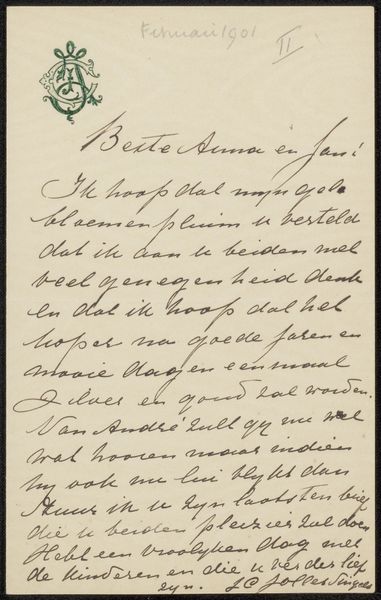 Februari 1901
II
Beste Anna en Jan!
Ik hoop dat mijn gele
bloemenpluim u verteld
dat ik aan u beiden met
veel genegenheid denk
en dat ik hoop dat het
koper na goede jaren en
mooie dagen eenmaal
zilver en goud zal worden.
Van André zult gy nu wel
wat hooren maar indien
hy ook nu lui blykt dan
stuur ik u zyn laatsten brief
die u beiden pleizier zal doen
Hebt een vroolyken dag met
de kinderen en die u verder lief
zyn. JC Jolles Singels